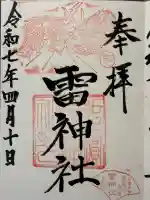 奉拝
雷神社
令和七年四月十日